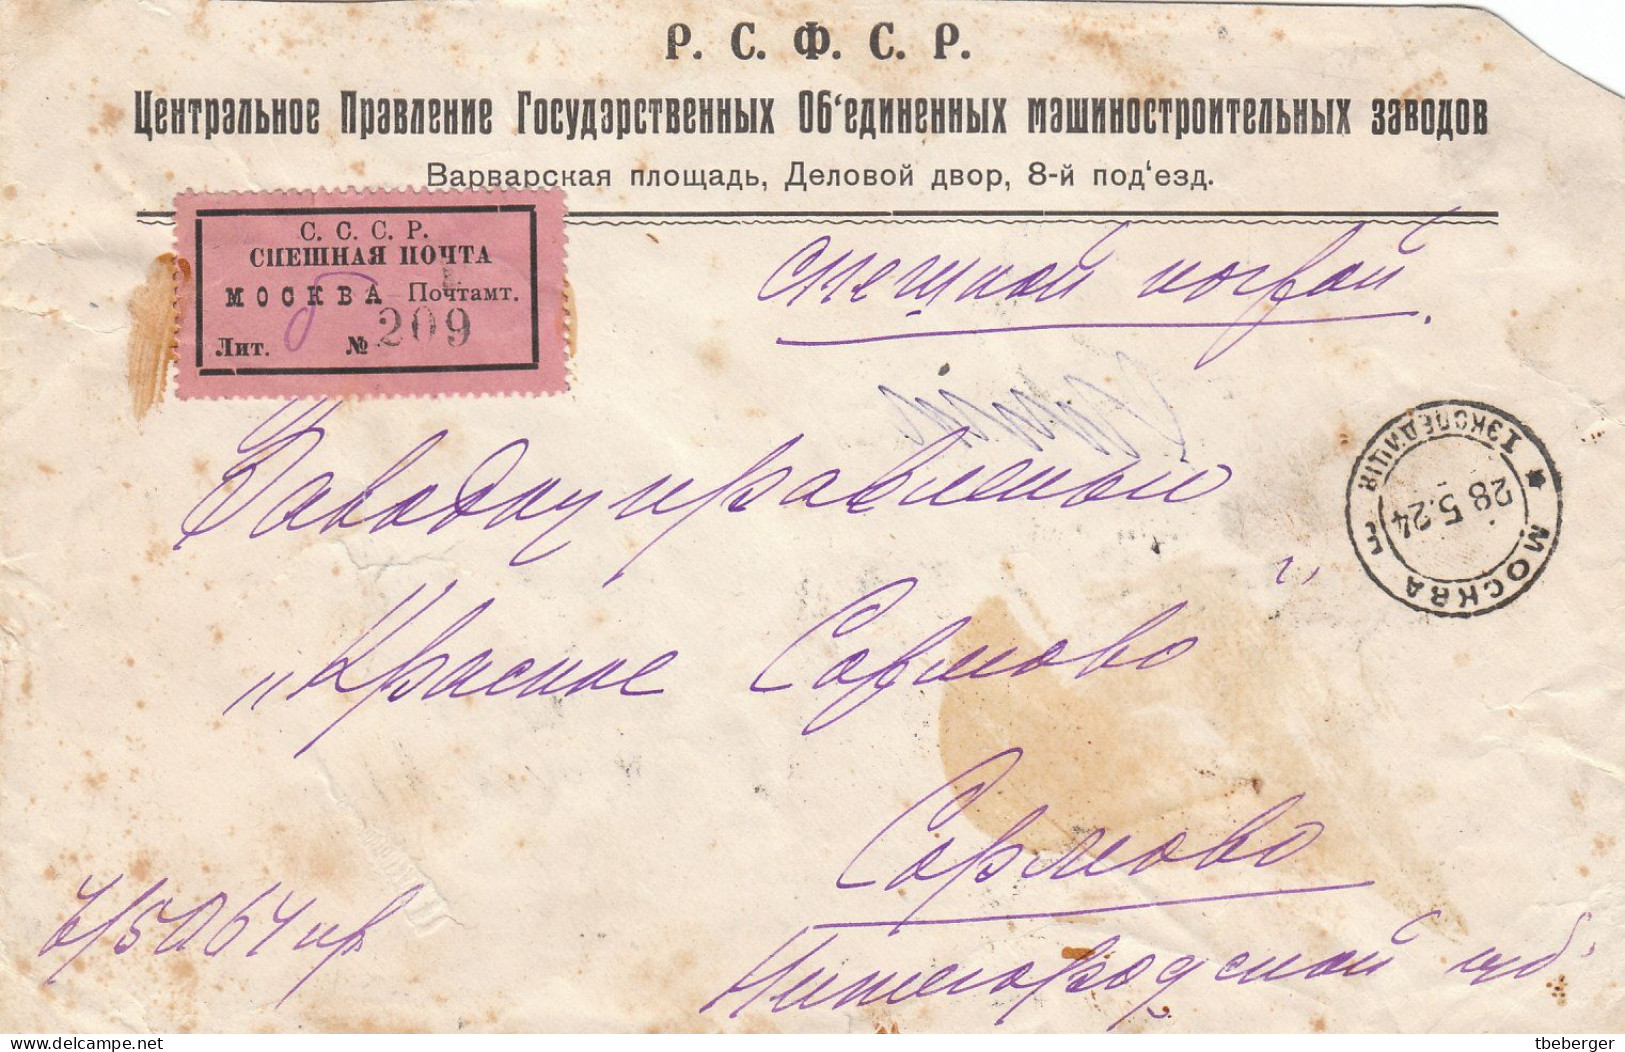 Р. С. Ф. С. Р.
Центральное Правление Государственных Об‘единенных машиностроительных заводов
Варварская площадь, Деловой двор, 8-й под‘езд.
С. С. С. Р.
СПЕШНАЯ ПОЧТА
МОСКВА Почтамт.
Лит. № 209
спешной почтой
Заводоуправлению
„Красное Сормово"
Сормово
Нижегородской губ.
МОСКВА
I ЭКСПЕДИЦІЯ
28.5.24
delcampe.net
tbeberger